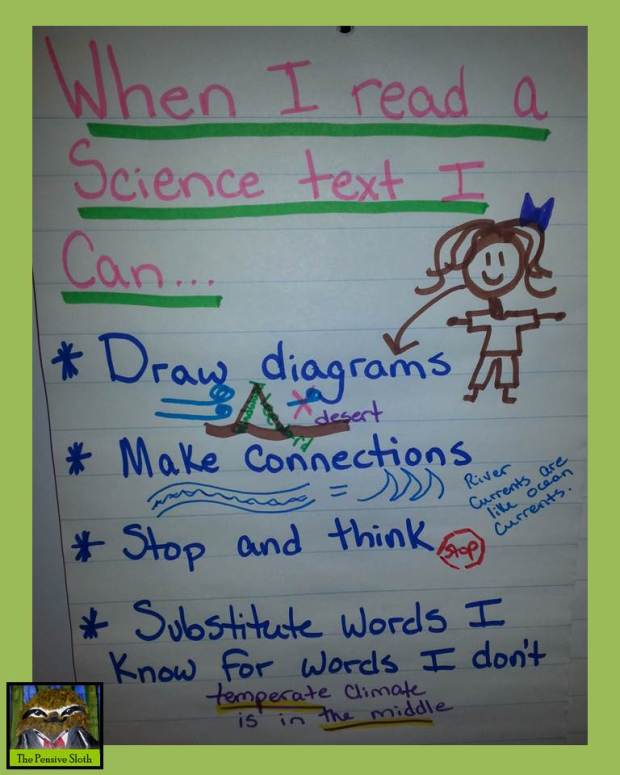 When I read a
Science text I
Can...
* Draw diagrams
desert
* Make Connections
=
River
Currents are
like ocean
Currents.
* Stop and think
Stop
* Substitute words I
Know For words I don't
temperate Climate
is in the middle
The Pensive Sloth